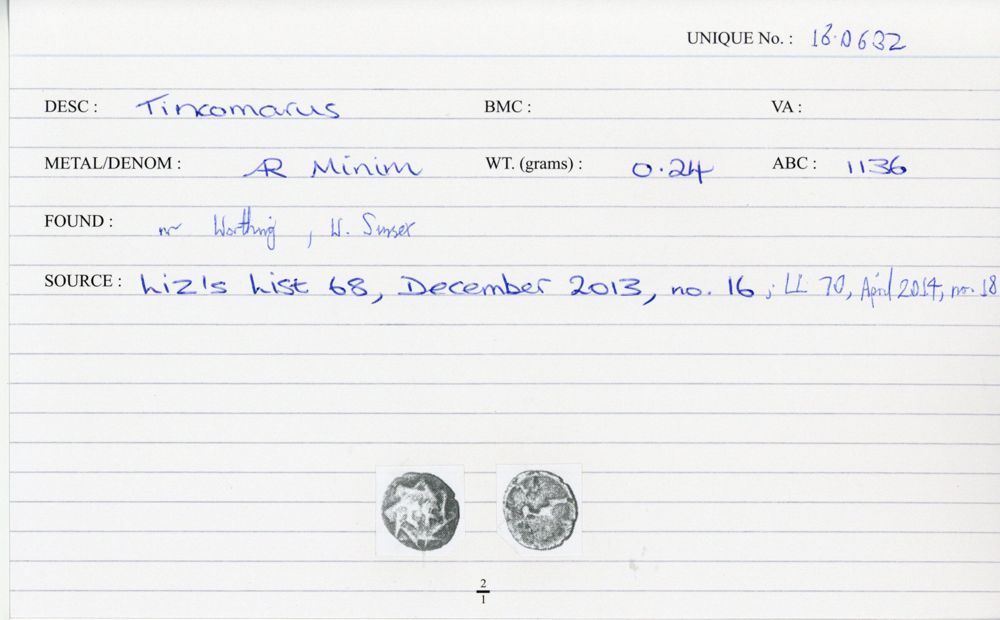 UNIQUE No. : 13.0632
DESC : Tincomarus BMC : VA :
METAL/DENOM : AR Minim WT. (grams) : 0.24 ABC : 1136
FOUND : nr Worthing, W. Sussex
SOURCE : Liz's List 68, December 2013, no. 16; LL 70, April 2014, no. 18
2
1